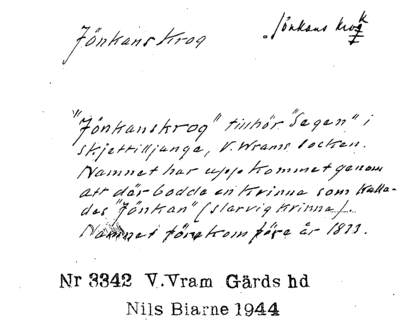 Jönkans Krog
jönkans krog
"Jönkanskrog" tillhör "Segen" i
Skjettilljunga, V. Wrams socken.
Namnet har uppkommet genom
att där bodde en kvinna som kalla-
des "Jönkan" (slarvig kvinna).
Namnet förekom före år 1833.
Nr 3342 V.Vram Gärds hd
Nils Biarne 1944